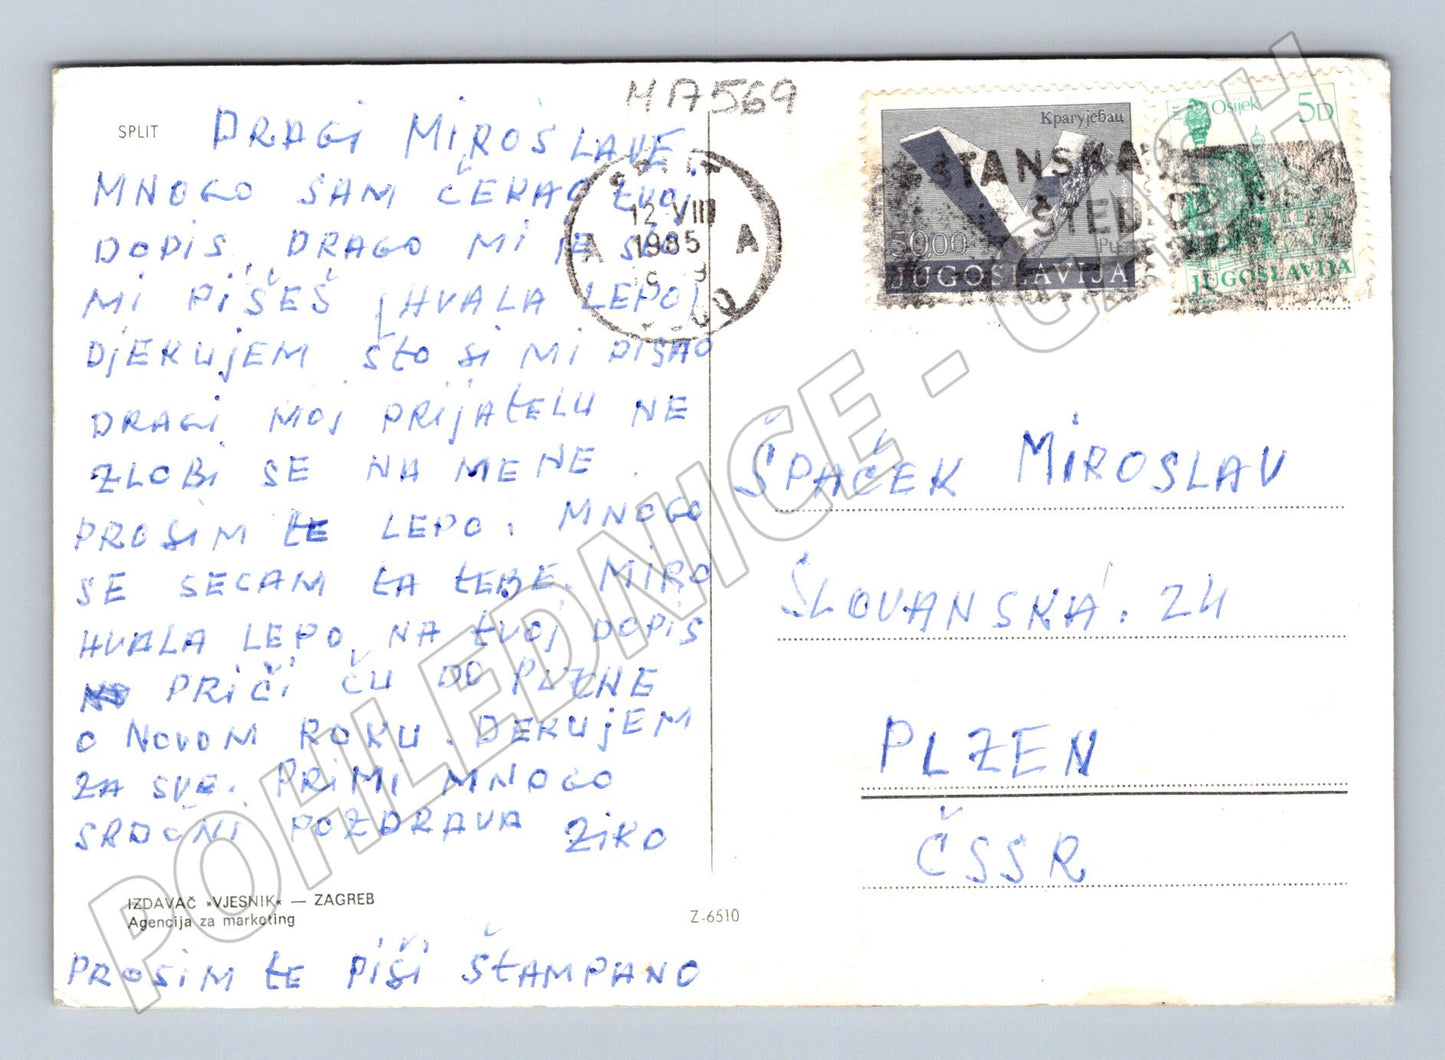 MA569
SPLIT
DRAGI MIROSLAVE.
MNOGO SAM ČEKAO TVOJ
DOPIS, DRAGO MI JE ŠTO
MI PIŠEŠ HVALA LEPO,
DJEKUJEM ŠTO SI MI PISAO
DRAGI MOJ PRIJATELU NE
ZLOBI SE NA MENE.
PROSIM TE LEPO. MNOGO
SE SECAM ZA TEBE. MIRO
HVALA LEPO NA TVOJ DOPIS
PRIČI ĆU DO PLZNE
O NOVOM ROKU. DEKUJEM
ZA SVE. PRIMI MNOGO
SRDČNI POZDRAVA ZIKO
IZDAVAČ »VJESNIK« — ZAGREB
Agencija za marketing
PROSIM TE PIŠI ŠTAMPANO
Z-6510
12 VIII
1985
A A
Крагујевац
50,00
JUGOSLAVIJA
Osijek
5D
JUGOSLAVIJA
STANSKA
ŠTED
ŠPAČEK MIROSLAV
ŠLOVANSKÁ. 24
PLZEN
ČSSR
POHLEDNICE - CASH